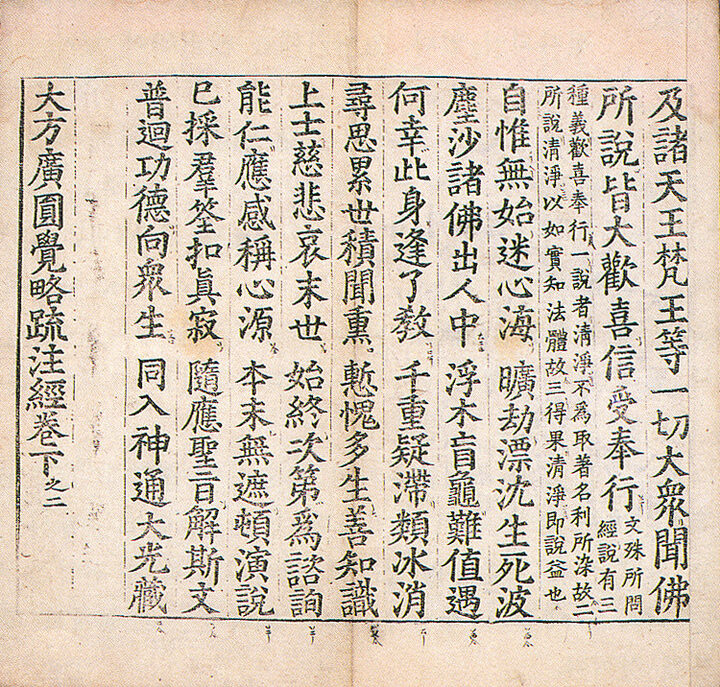 及諸天王梵王等一切大衆聞佛
所說皆大歡喜信受奉行
文殊所問
經說有三
種義歡喜奉行一說者清淨不為取著名利所染故二
所說清淨以如實知法體故三得果清淨即說益也
自惟無始迷心海 曠劫漂沈生死波
塵沙諸佛出人中 浮木盲龜難值遇
何幸此身逢了教 千重疑滯類冰消
尋思累世積聞熏 慙愧多生善知識
上士慈悲哀末世 始終次第為諮詢
能仁應感稱心源 本末無遮頓演說
已採羣筌扣真寂 隨應聖旨解斯文
普迴功德向衆生 同入神通大光藏
大方廣圓覺略疏注經卷下之二